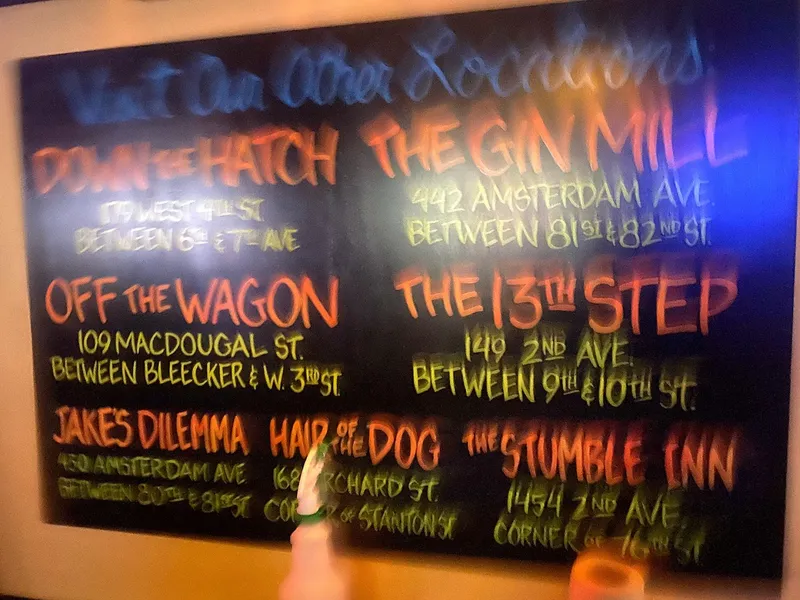 Visit Our Other Locations:
DOWN THE HATCH
179 WEST 4TH ST
BETWEEN 6TH & 7TH AVE
THE GIN MILL
442 AMSTERDAM AVE.
BETWEEN 81ST & 82ND ST.
OFF THE WAGON
109 MACDOUGAL ST.
BETWEEN BLEECKER & W. 3RD ST.
THE 13TH STEP
149 2ND AVE.
BETWEEN 9TH & 10TH ST.
JAKE'S DILEMMA
430 AMSTERDAM AVE
BETWEEN 80TH & 81ST ST
HAIR OF THE DOG
168 ORCHARD ST.
CORNER OF STANTON ST
THE STUMBLE INN
1454 2ND AVE.
CORNER OF 76TH ST